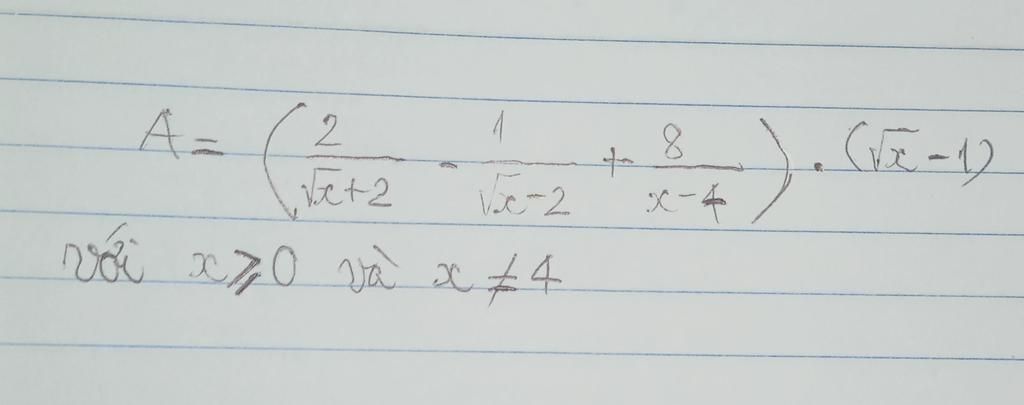 A = (2/(√x+2) - 1/(√x-2) + 8/(x-4)) . (√x - 1)
với x ⩾ 0 và x ≠ 4